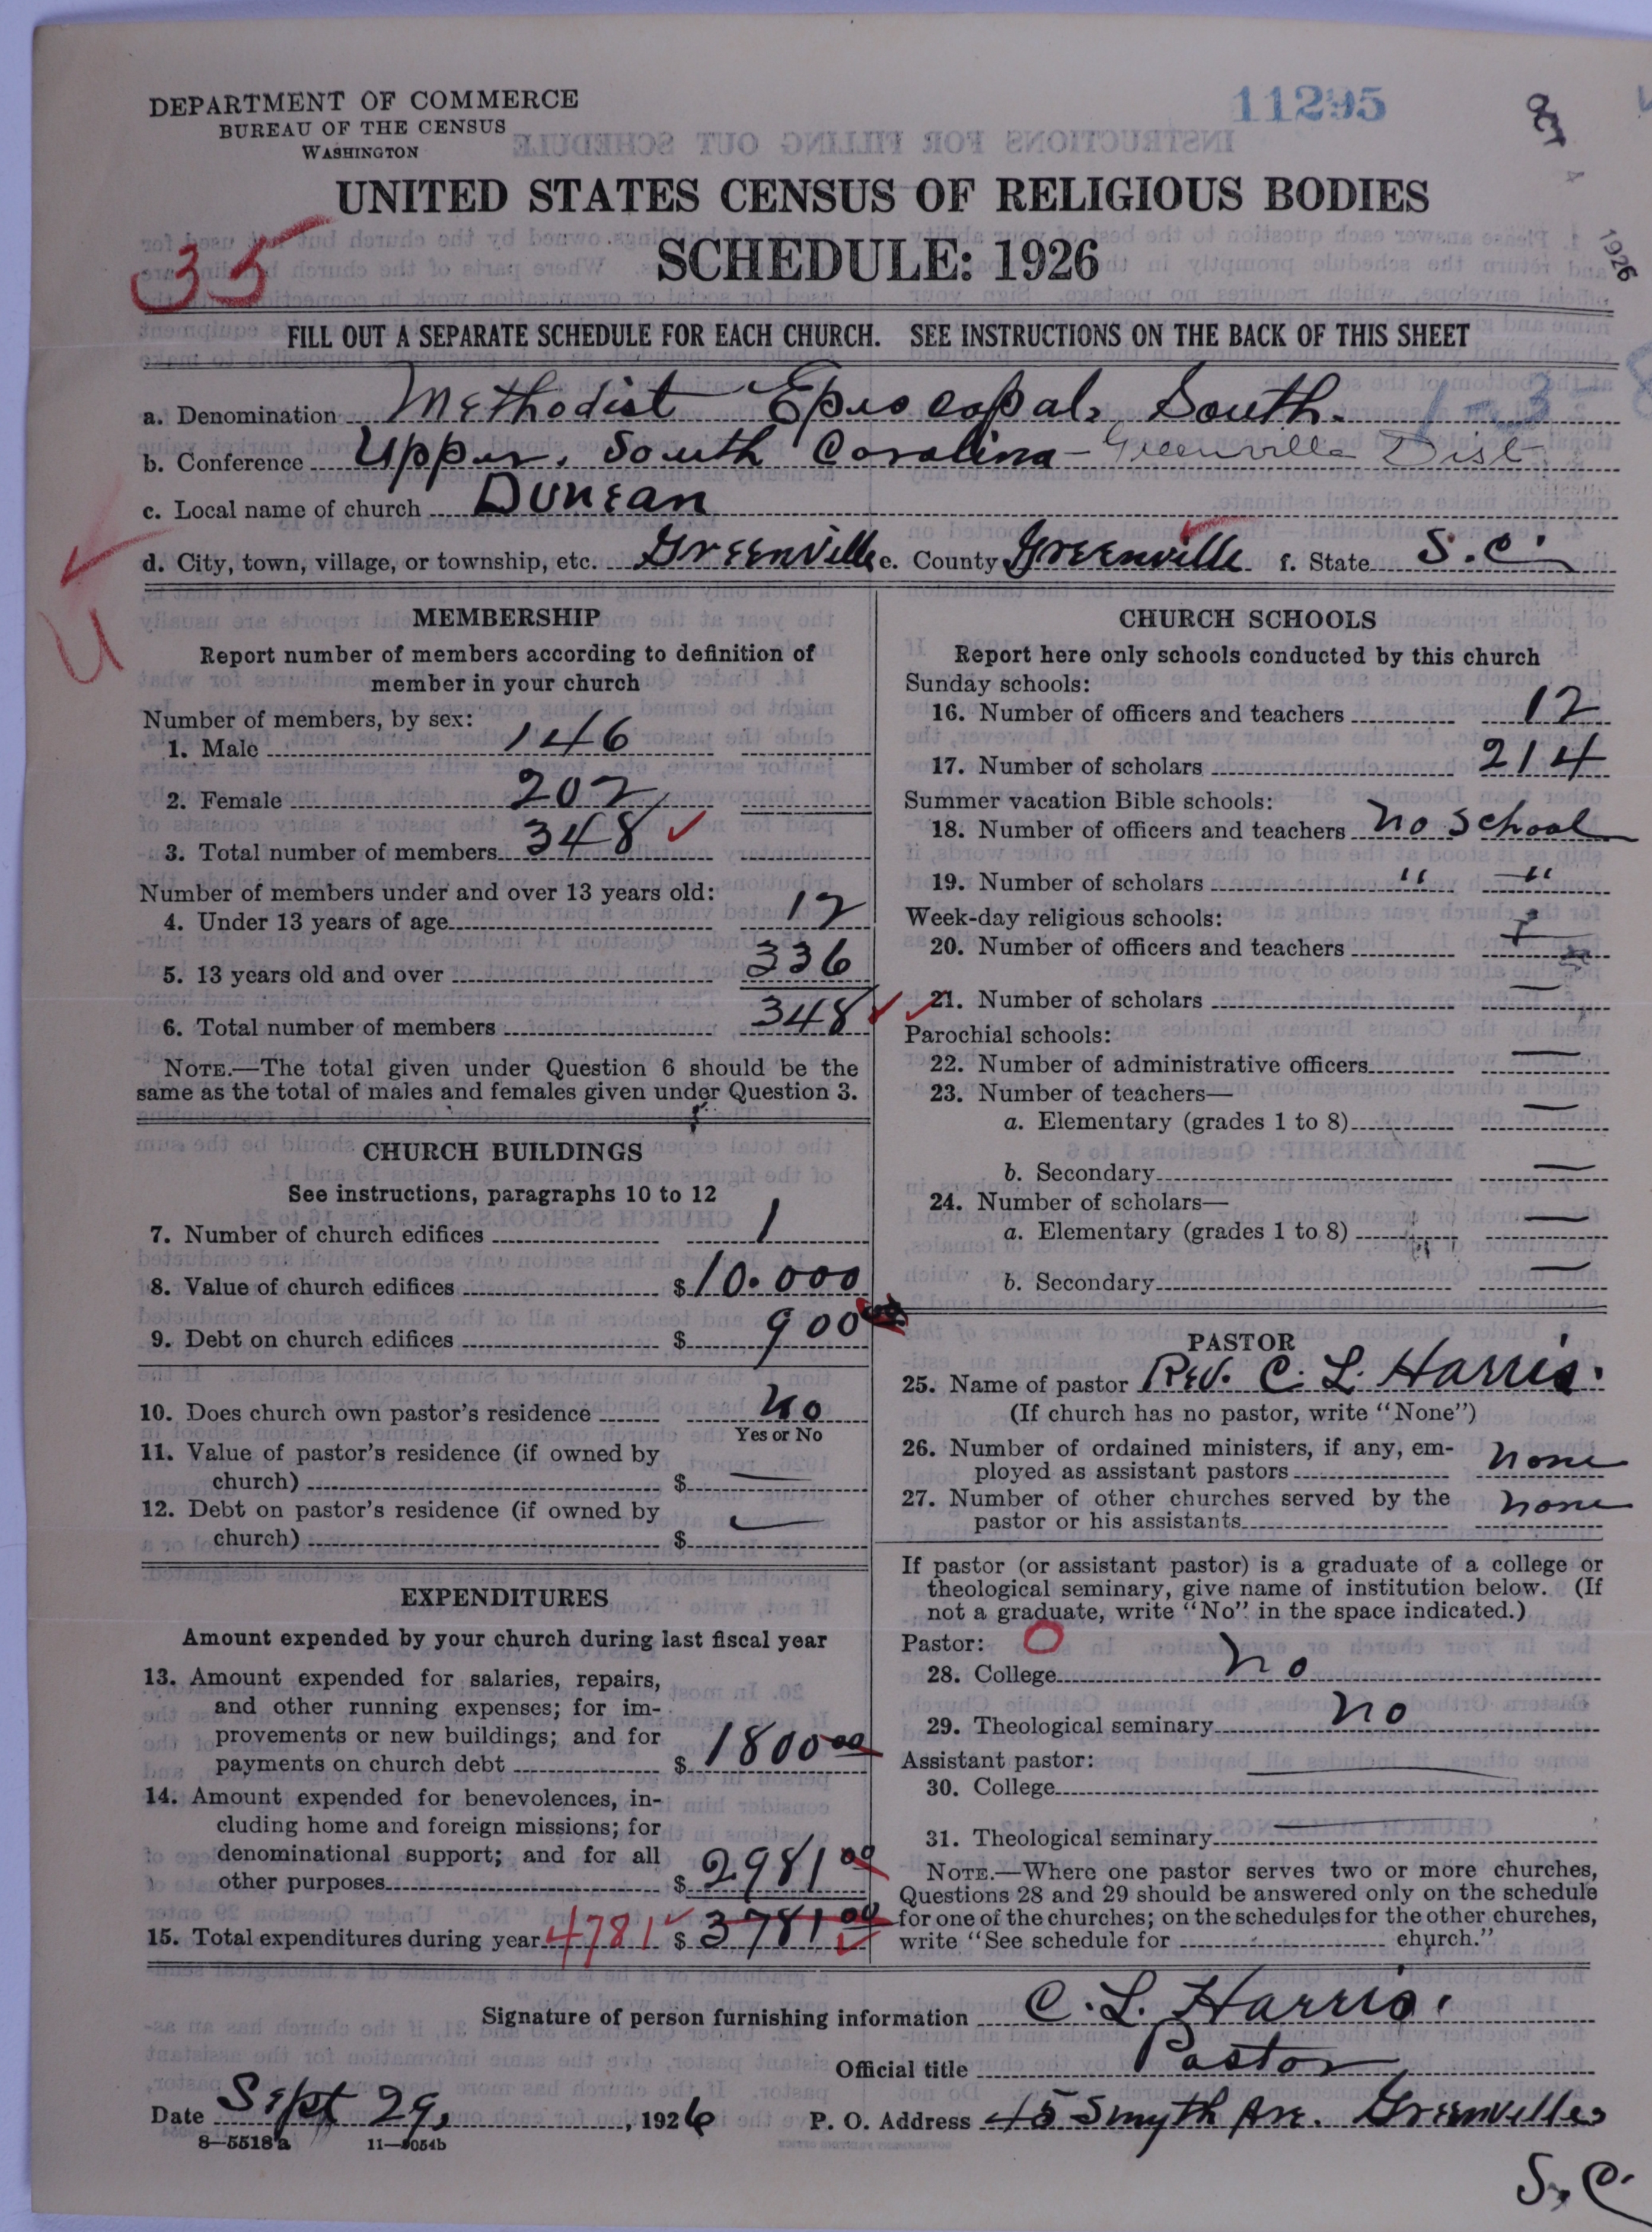 DEPARTMENT OF COMMERCE
BUREAU OF THE CENSUS
WASHINGTON
11295
OCT 4 1926
UNITED STATES CENSUS OF RELIGIOUS BODIES
35
SCHEDULE: 1926
FILL OUT A SEPARATE SCHEDULE FOR EACH CHURCH. SEE INSTRUCTIONS ON THE BACK OF THIS SHEET
a. Denomination Methodist Episcopal, South. 1-3-8
b. Conference Upper, South Carolina - Greenville Dist
c. Local name of church Duncan
d. City, town, village, or township, etc. Greenville e. County Greenville f. State S.C.
MEMBERSHIP
Report number of members according to definition of
member in your church
Number of members, by sex:
1. Male 146
2. Female 202
3. Total number of members 348 ✓
Number of members under and over 13 years old:
4. Under 13 years of age 12
5. 13 years old and over 336
6. Total number of members 348 ✓ ✓
NOTE.—The total given under Question 6 should be the
same as the total of males and females given under Question 3.
CHURCH BUILDINGS
See instructions, paragraphs 10 to 12
7. Number of church edifices 1
8. Value of church edifices $ 10.000
9. Debt on church edifices $ 900
10. Does church own pastor's residence No
Yes or No
11. Value of pastor's residence (if owned by
church) $ —
12. Debt on pastor's residence (if owned by
church) $ —
EXPENDITURES
Amount expended by your church during last fiscal year
13. Amount expended for salaries, repairs,
and other running expenses; for im-
provements or new buildings; and for
payments on church debt $ 1800 00
14. Amount expended for benevolences, in-
cluding home and foreign missions; for
denominational support; and for all
other purposes $ 2981 00
15. Total expenditures during year 4781 ✓ $ 3781 00 ✓
CHURCH SCHOOLS
Report here only schools conducted by this church
Sunday schools:
16. Number of officers and teachers 12
17. Number of scholars 214
Summer vacation Bible schools:
18. Number of officers and teachers no school
19. Number of scholars " "
Week-day religious schools:
20. Number of officers and teachers
21. Number of scholars —
Parochial schools:
22. Number of administrative officers —
23. Number of teachers—
a. Elementary (grades 1 to 8) —
b. Secondary —
24. Number of scholars—
a. Elementary (grades 1 to 8) —
b. Secondary —
PASTOR
25. Name of pastor Rev. C. L. Harris.
(If church has no pastor, write "None")
26. Number of ordained ministers, if any, em-
ployed as assistant pastors none
27. Number of other churches served by the
pastor or his assistants none
If pastor (or assistant pastor) is a graduate of a college or
theological seminary, give name of institution below. (If
not a graduate, write "No" in the space indicated.)
Pastor: O
28. College no
29. Theological seminary no
Assistant pastor:
30. College —
31. Theological seminary —
NOTE.—Where one pastor serves two or more churches,
Questions 28 and 29 should be answered only on the schedule
for one of the churches; on the schedules for the other churches,
write "See schedule for church."
Signature of person furnishing information C. L. Harris.
Official title Pastor
Date Sept 29, 1926 P. O. Address 45 Smyth Ave. Greenville,
S. C.
8—5518a 11—9054b